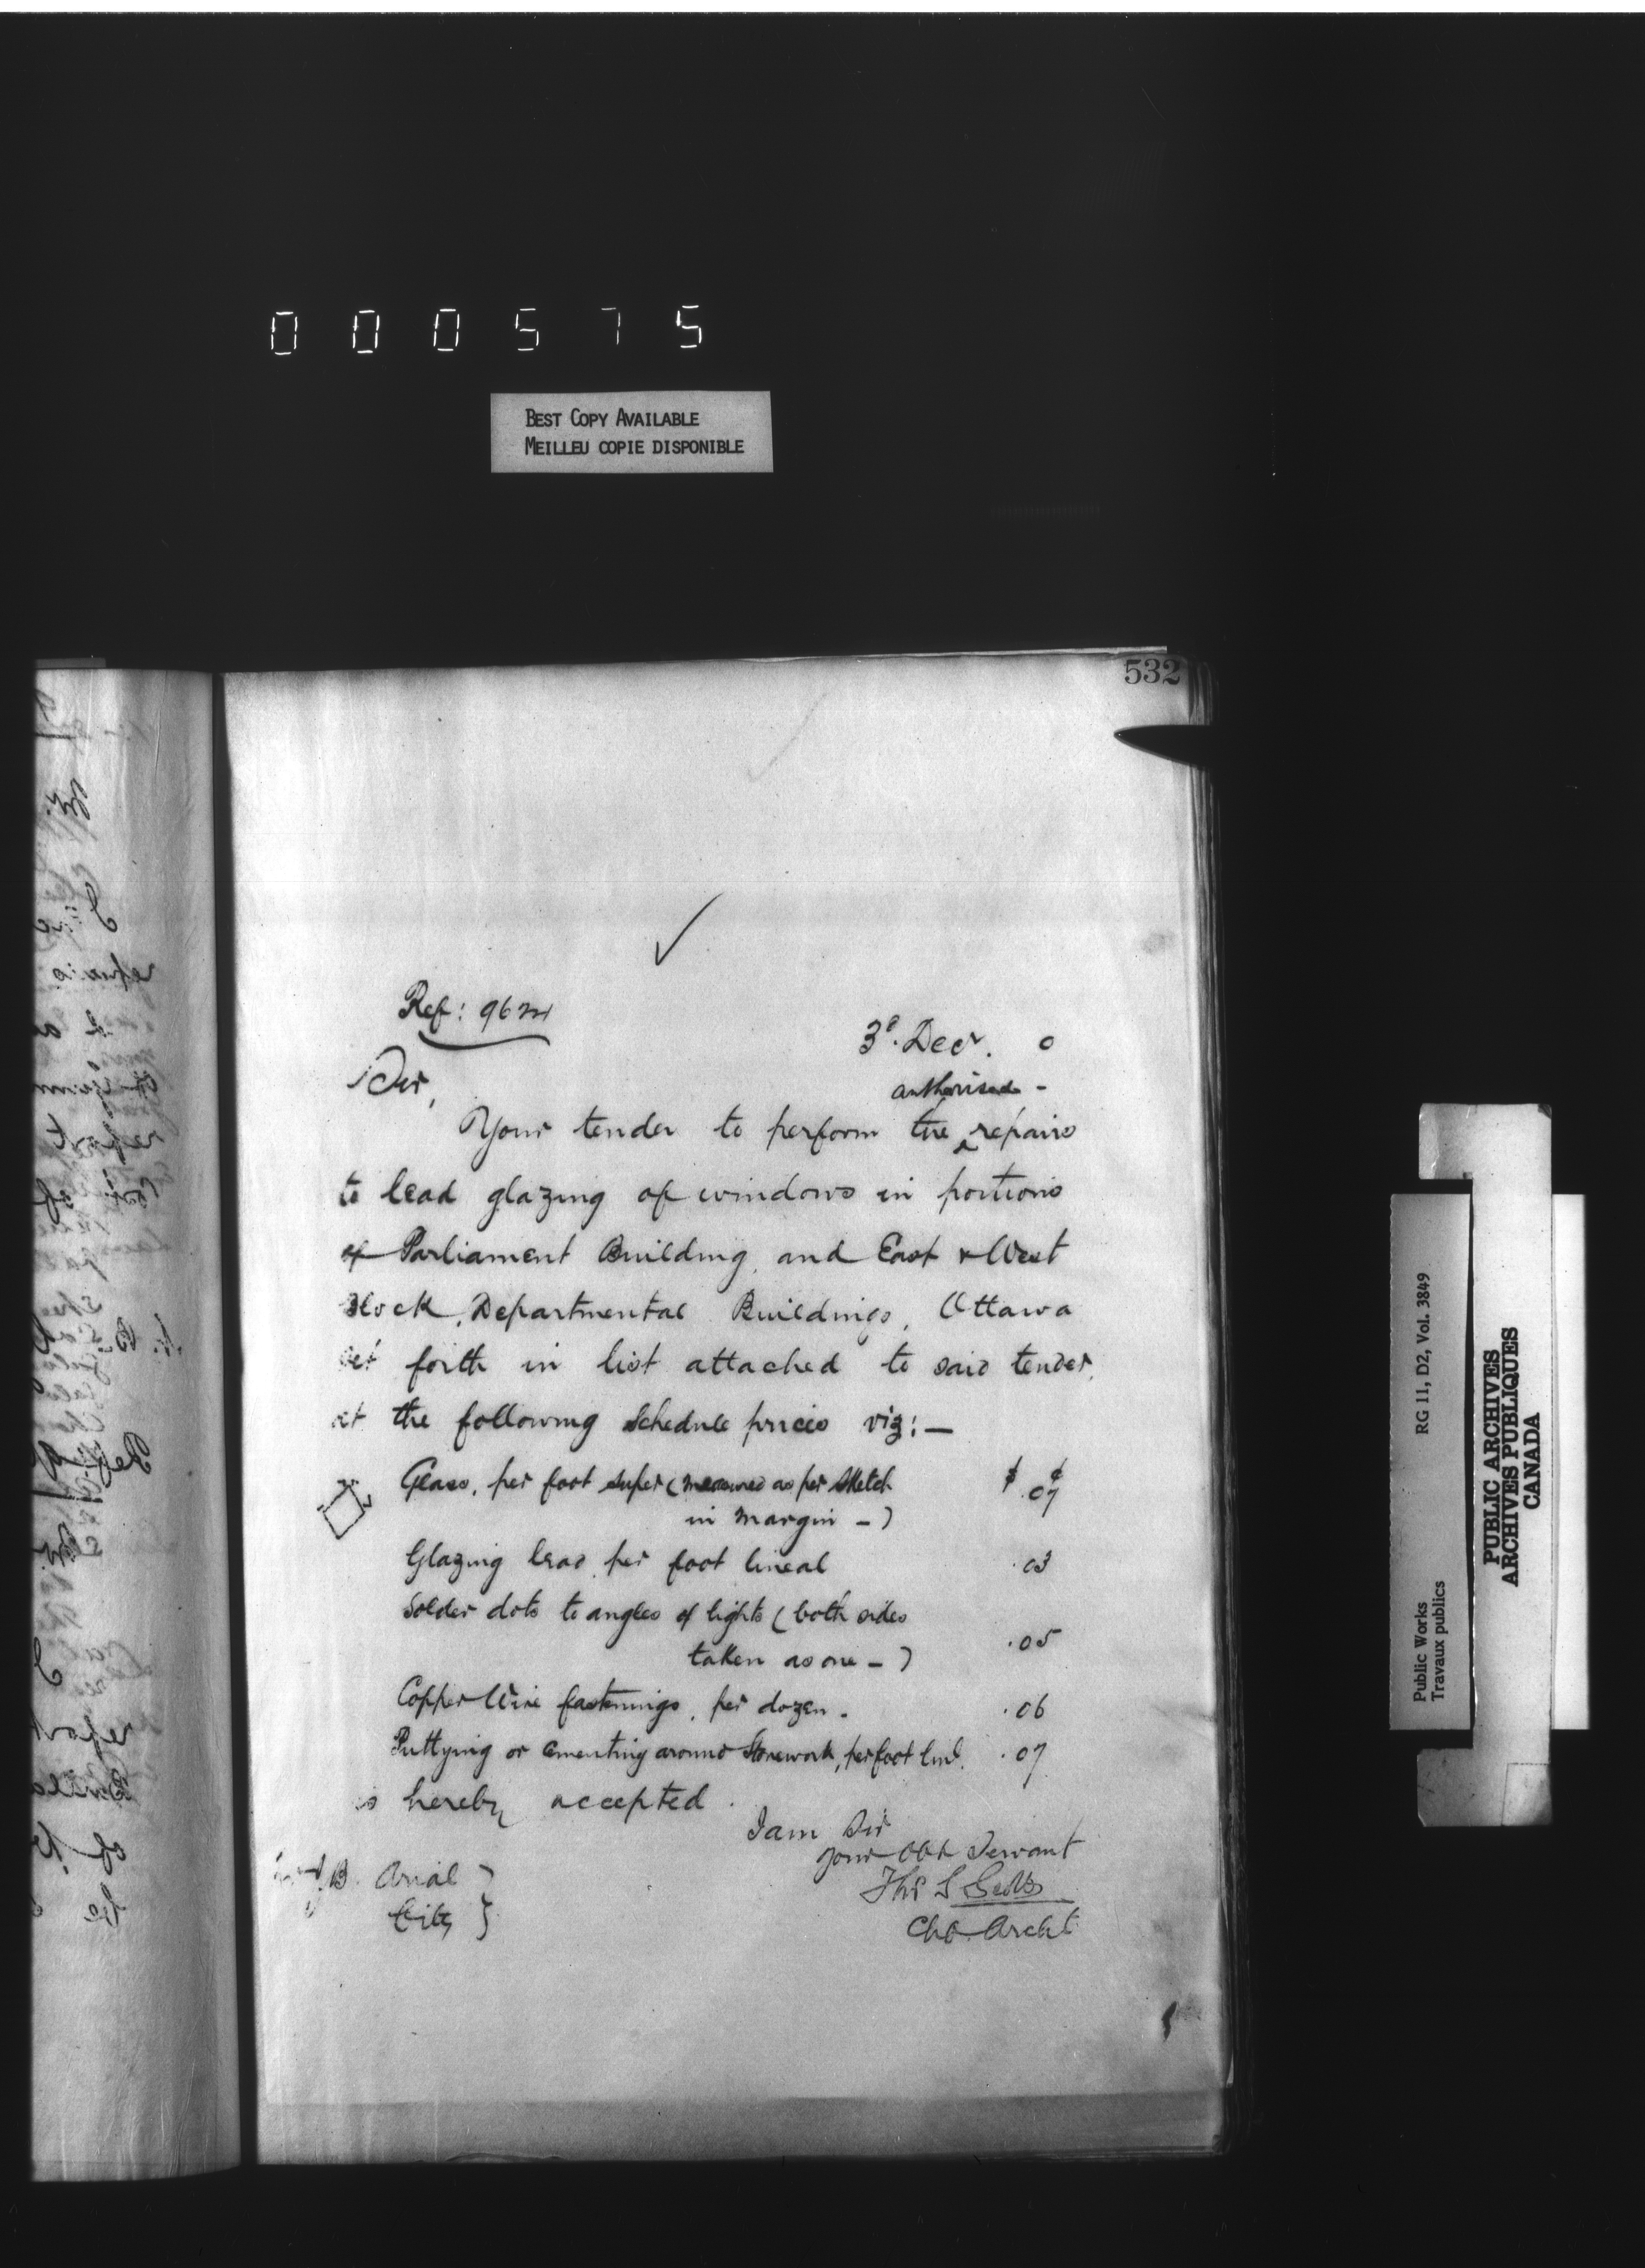 000575
BEST COPY AVAILABLE
MEILLEU COPIE DISPONIBLE
532
Ref:
3d. Decr. 0
Sir,
authorised -
Your tender to perform the ‸ repairs
to lead glazing of windows in portions
of Parliament Building, and East & West
Block, Departmental Buildings, Ottawa
set forth in list attached to said tender,
at the following Schedule prices viz: —
Glass, per foot super (measured as per Sketch $ ¢ .07
in margin -)
Glazing lead, per foot lineal .03
Solder dots to angles of lights (both sides
taken as one -) .05
Copper Wire fastenings, per dozen. .06
Puttying or Cementing around Stonework, per foot linl. .07
is hereby accepted.
I am Sir
your Obt Servant
Thos S Scott
Chf. Archt
B. Arial }
City }
Public Works RG 11, D2, Vol. 3849
Travaux publics
PUBLIC ARCHIVES
ARCHIVES PUBLIQUES
CANADA